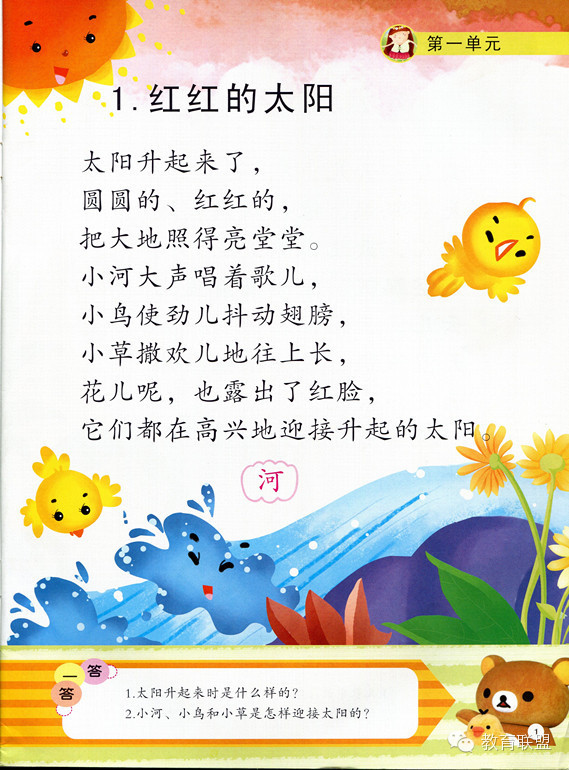 第一单元
1.红红的太阳
太阳升起来了，
圆圆的、红红的，
把大地照得亮堂堂。
小河大声唱着歌儿，
小鸟使劲儿抖动翅膀，
小草撒欢儿地往上长，
花儿呢，也露出了红脸，
它们都在高兴地迎接升起的太阳。
河
一答
答
1.太阳升起来时是什么样的？
2.小河、小鸟和小草是怎样迎接太阳的？
1
教育联盟